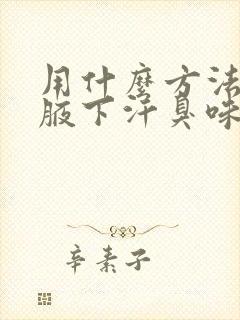 用什麽方法
腋下汗臭味
辛素子